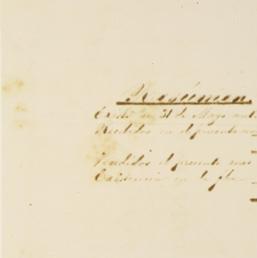 Resúmen.
Existª en 31 de Mayo ant
Recibidos en el presente m
Vendidos el presente mes
Existencia en la fha